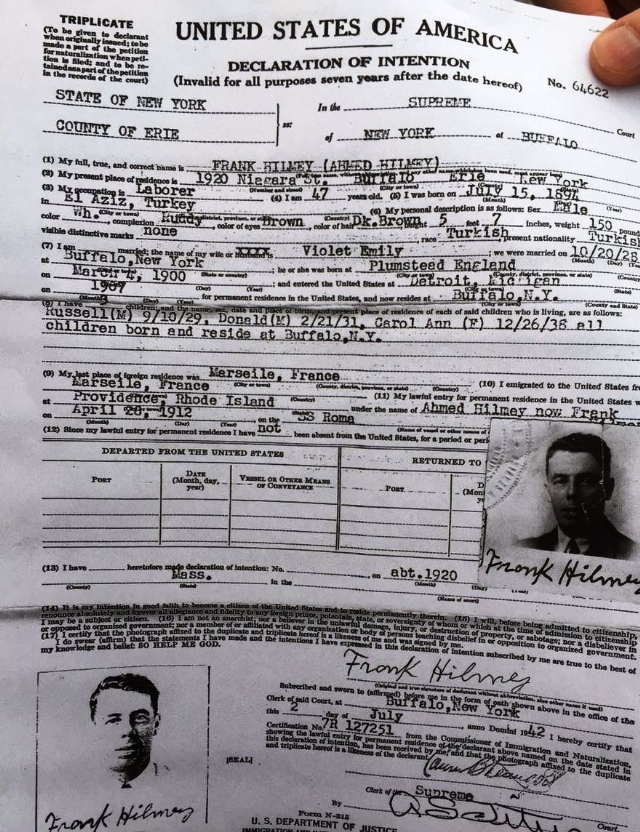 TRIPLICATE
(To be given to declarant
when originally issued; to be
made a part of the petition
for naturalization when peti-
tion is filed; and to be re-
tained as a part of the petition
in the records of the court)
UNITED STATES OF AMERICA
DECLARATION OF INTENTION
(Invalid for all purposes seven years after the date hereof)
No. 64622
STATE OF NEW YORK
COUNTY OF ERIE
ss:
In the SUPREME Court
of NEW YORK at BUFFALO
(1) My full, true, and correct name is FRANK HILMEY (AHMED HILMEY)
(2) My present place of residence is 1920 Niagara St. Buffalo Erie New York
(3) My occupation is Laborer (4) I am 47 years old. (5) I was born on July 15, 1894
in El Aziz, Turkey (6) My personal description is as follows: Sex Male
color Wh. complexion Ruddy color of eyes Brown color of hair Dk.Brown 5 feet 7 inches, weight 150 pounds
visible distinctive marks none race Turkish present nationality Turkish
(7) I am married; the name of my wife or xxxx Violet Emily ; we were married on 10/20/28
at Buffalo, New York ; he or she was born at Plumstead England
on March 4, 1900 ; and entered the United States at Detroit, Michigan
on 1907 for permanent residence in the United States, and now resides at Buffalo, N.Y.
(8) I have children, and the name, sex, date and place of birth, and present place of residence of each of said children who is living, are as follows:
Russell(M) 9/10/29, Donald(M) 2/21/31, Carol Ann (F) 12/26/38 all
children born and reside at Buffalo, N.Y.
(9) My last place of foreign residence was Marseile, France (10) I emigrated to the United States
Marseile, France (11) My lawful entry for permanent residence in the United States
at Providence, Rhode Island under the name of Ahmed Hilmey now Frank
on April 28, 1912 on the SS Roma
(12) Since my lawful entry for permanent residence I have not been absent from the United States, for a period or
DEPARTED FROM THE UNITED STATES
RETURNED TO
PORT
DATE (Month, day, year)
VESSEL OR OTHER MEANS OF CONVEYANCE
PORT
Frank Hilmey
(13) I have heretofore made declaration of intention: No. on abt.1920
Mass. in the
(14) It is my intention in good faith to become a citizen of the United States and to reside permanently therein.
(15) I will, before being admitted to citizenship,
renounce absolutely and forever all allegiance and fidelity to any foreign prince, potentate, state, or sovereignty of whom or which at the time of admission to citizenship
I may be a subject or citizen. (16) I am not an anarchist; nor a believer in the unlawful damage, injury, or destruction of property, or sabotage; nor a disbeliever in
or opposed to organized government; nor a member of or affiliated with any organization or body of persons teaching disbelief in or opposition to organized government.
(17) I certify that the photograph affixed to the duplicate and triplicate hereof is a likeness of me and was signed by me.
I do swear (affirm) that the statements I have made and the intentions I have expressed in this declaration of intention subscribed by me are true to the best of
my knowledge and belief: SO HELP ME GOD.
Frank Hilmey
Subscribed and sworn to (affirmed) before me in the form of oath shown above in the office of the
Clerk of said Court, at Buffalo, New York
this 2 day of July anno Domini 1942 I hereby certify that
Certification No. 7R 127251 from the Commissioner of Immigration and Naturalization,
showing the lawful entry for permanent residence of the declarant above named on the date stated in
this declaration of intention, has been received by me, and that the photograph affixed to the duplicate
and triplicate hereof is a likeness of the declarant.
[SEAL]
Clerk of the Supreme
By
Court.
Frank Hilmey
Form N-315
U. S. DEPARTMENT OF JUSTICE